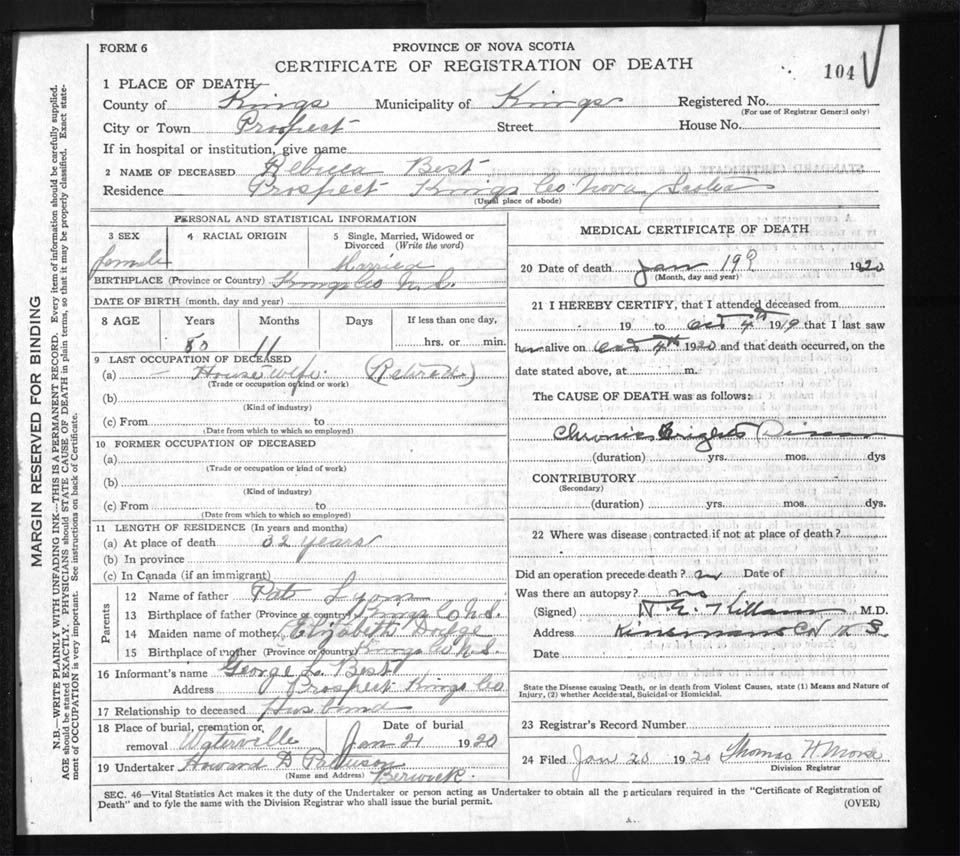 FORM 6
PROVINCE OF NOVA SCOTIA
CERTIFICATE OF REGISTRATION OF DEATH
104
1 PLACE OF DEATH
County of Kings Municipality of Kings Registered No.
(For use of Registrar General only)
City or Town Prospect Street House No.
If in hospital or institution, give name
2 NAME OF DECEASED Rebecca Best
Residence Prospect Kings Co Nova Scotia
(Usual place of abode)
PERSONAL AND STATISTICAL INFORMATION
3 SEX 4 RACIAL ORIGIN 5 Single, Married, Widowed or Divorced (Write the word)
female Married
BIRTHPLACE (Province or Country) Kings Co N.S.
DATE OF BIRTH (month, day and year)
8 AGE Years Months Days If less than one day,
80 11 hrs. or min.
9 LAST OCCUPATION OF DECEASED
(a) — Housewife (Retired)
(Trade or occupation or kind or work)
(b)
(Kind of industry)
(c) From to
(Date from which to which so employed)
10 FORMER OCCUPATION OF DECEASED
(a)
(Trade or occupation or kind of work)
(b)
(Kind of industry)
(c) From to
(Date from which to which so employed)
11 LENGTH OF RESIDENCE (In years and months)
(a) At place of death 32 years
(b) In province
(c) In Canada (if an immigrant)
Parents
12 Name of father Pat Lyon
13 Birthplace of father (Province or country) Kings Co N.S.
14 Maiden name of mother Elizabeth Dodge
15 Birthplace of mother (Province or country) Kings Co N.S.
16 Informant's name George L. Best
Address Prospect Kings Co
17 Relationship to deceased Husband
18 Place of burial, cremation or removal Waterville Date of burial Jan 21 1920
19 Undertaker Howard D
(Name and Address) Berwick.
MEDICAL CERTIFICATE OF DEATH
20 Date of death Jan 19 1920
(Month, day and year)
21 I HEREBY CERTIFY, that I attended deceased from
19 to Oct 4th 1919 that I last saw
her alive on Oct 4th 1920 and that death occurred, on the
date stated above, at m.
The CAUSE OF DEATH was as follows:
Chronic Brights Disease
(duration) yrs. mos. dys
CONTRIBUTORY
(Secondary)
(duration) yrs. mos. dys.
22 Where was disease contracted if not at place of death?
Did an operation precede death? no Date of
Was there an autopsy? no
(Signed) M.D.
Address N S
Date
State the Disease causing Death, or in death from Violent Causes, state (1) Means and Nature of Injury, and (2) whether Accidental, Suicidal or Homicidal.
23 Registrar's Record Number
24 Filed Jan 20 1920 Thomas H Morse
Division Registrar
SEC. 46—Vital Statistics Act makes it the duty of the Undertaker or person acting as Undertaker to obtain all the particulars required in the "Certificate of Registration of
Death" and to fyle the same with the Division Registrar who shall issue the burial permit. (OVER)
MARGIN RESERVED FOR BINDING
N.B.—WRITE PLAINLY WITH UNFADING INK—THIS IS A PERMANENT RECORD. Every item of information should be carefully supplied.
AGE should be stated EXACTLY. PHYSICIANS should STATE CAUSE OF DEATH in plain terms, so that it may be properly classified. Exact state-
ment of OCCUPATION is very important. See instructions on back of Certificate.